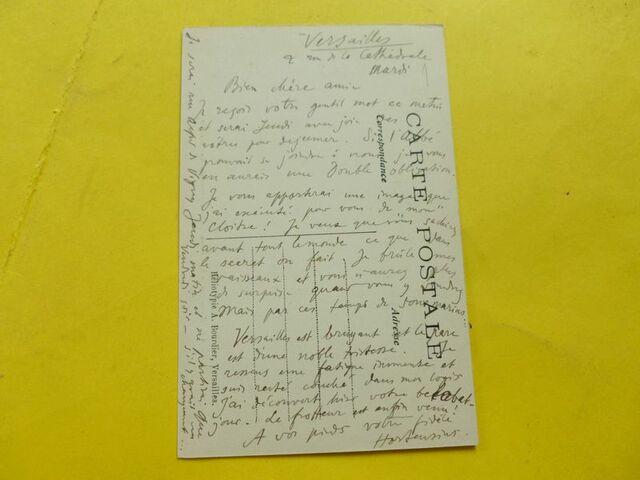 Versailles
4 rue de la Cathédrale
Mardi
Bien chère amie
Je reçois votre gentil mot ce matin
et serai Jeudi avec joie
vôtre pour dejeuner. Si l'abbé
pouvait se joindre à nous je vous
en aurais une Double obligation.
Je vous apporterai une image que
j'ai exécuté pour vous de mon
Cloître! Je veux que vous sachiez
avant tout le monde ce que dans
le secret on fait. Je brûle mes
vaisseaux et vous n'aurez plus
de surprise quand vous y viendrez
Mais par ces temps de
Versailles est bruyant et le parc
est d'une noble tristesse. Je
ressens une fatigue immense et
suis resté couché dans mon logis
j'ai découvert hier votre bel abat-
jour. Le frotteur est enfin venu!
A vos pieds votre fidèle
Hortensius
Je serai rue
Jeudi matin et ne partirai que
Vendredi soir
CARTE POSTALE
Correspondance
Adresse
Héliotypie A. Bourdier, Versailles.